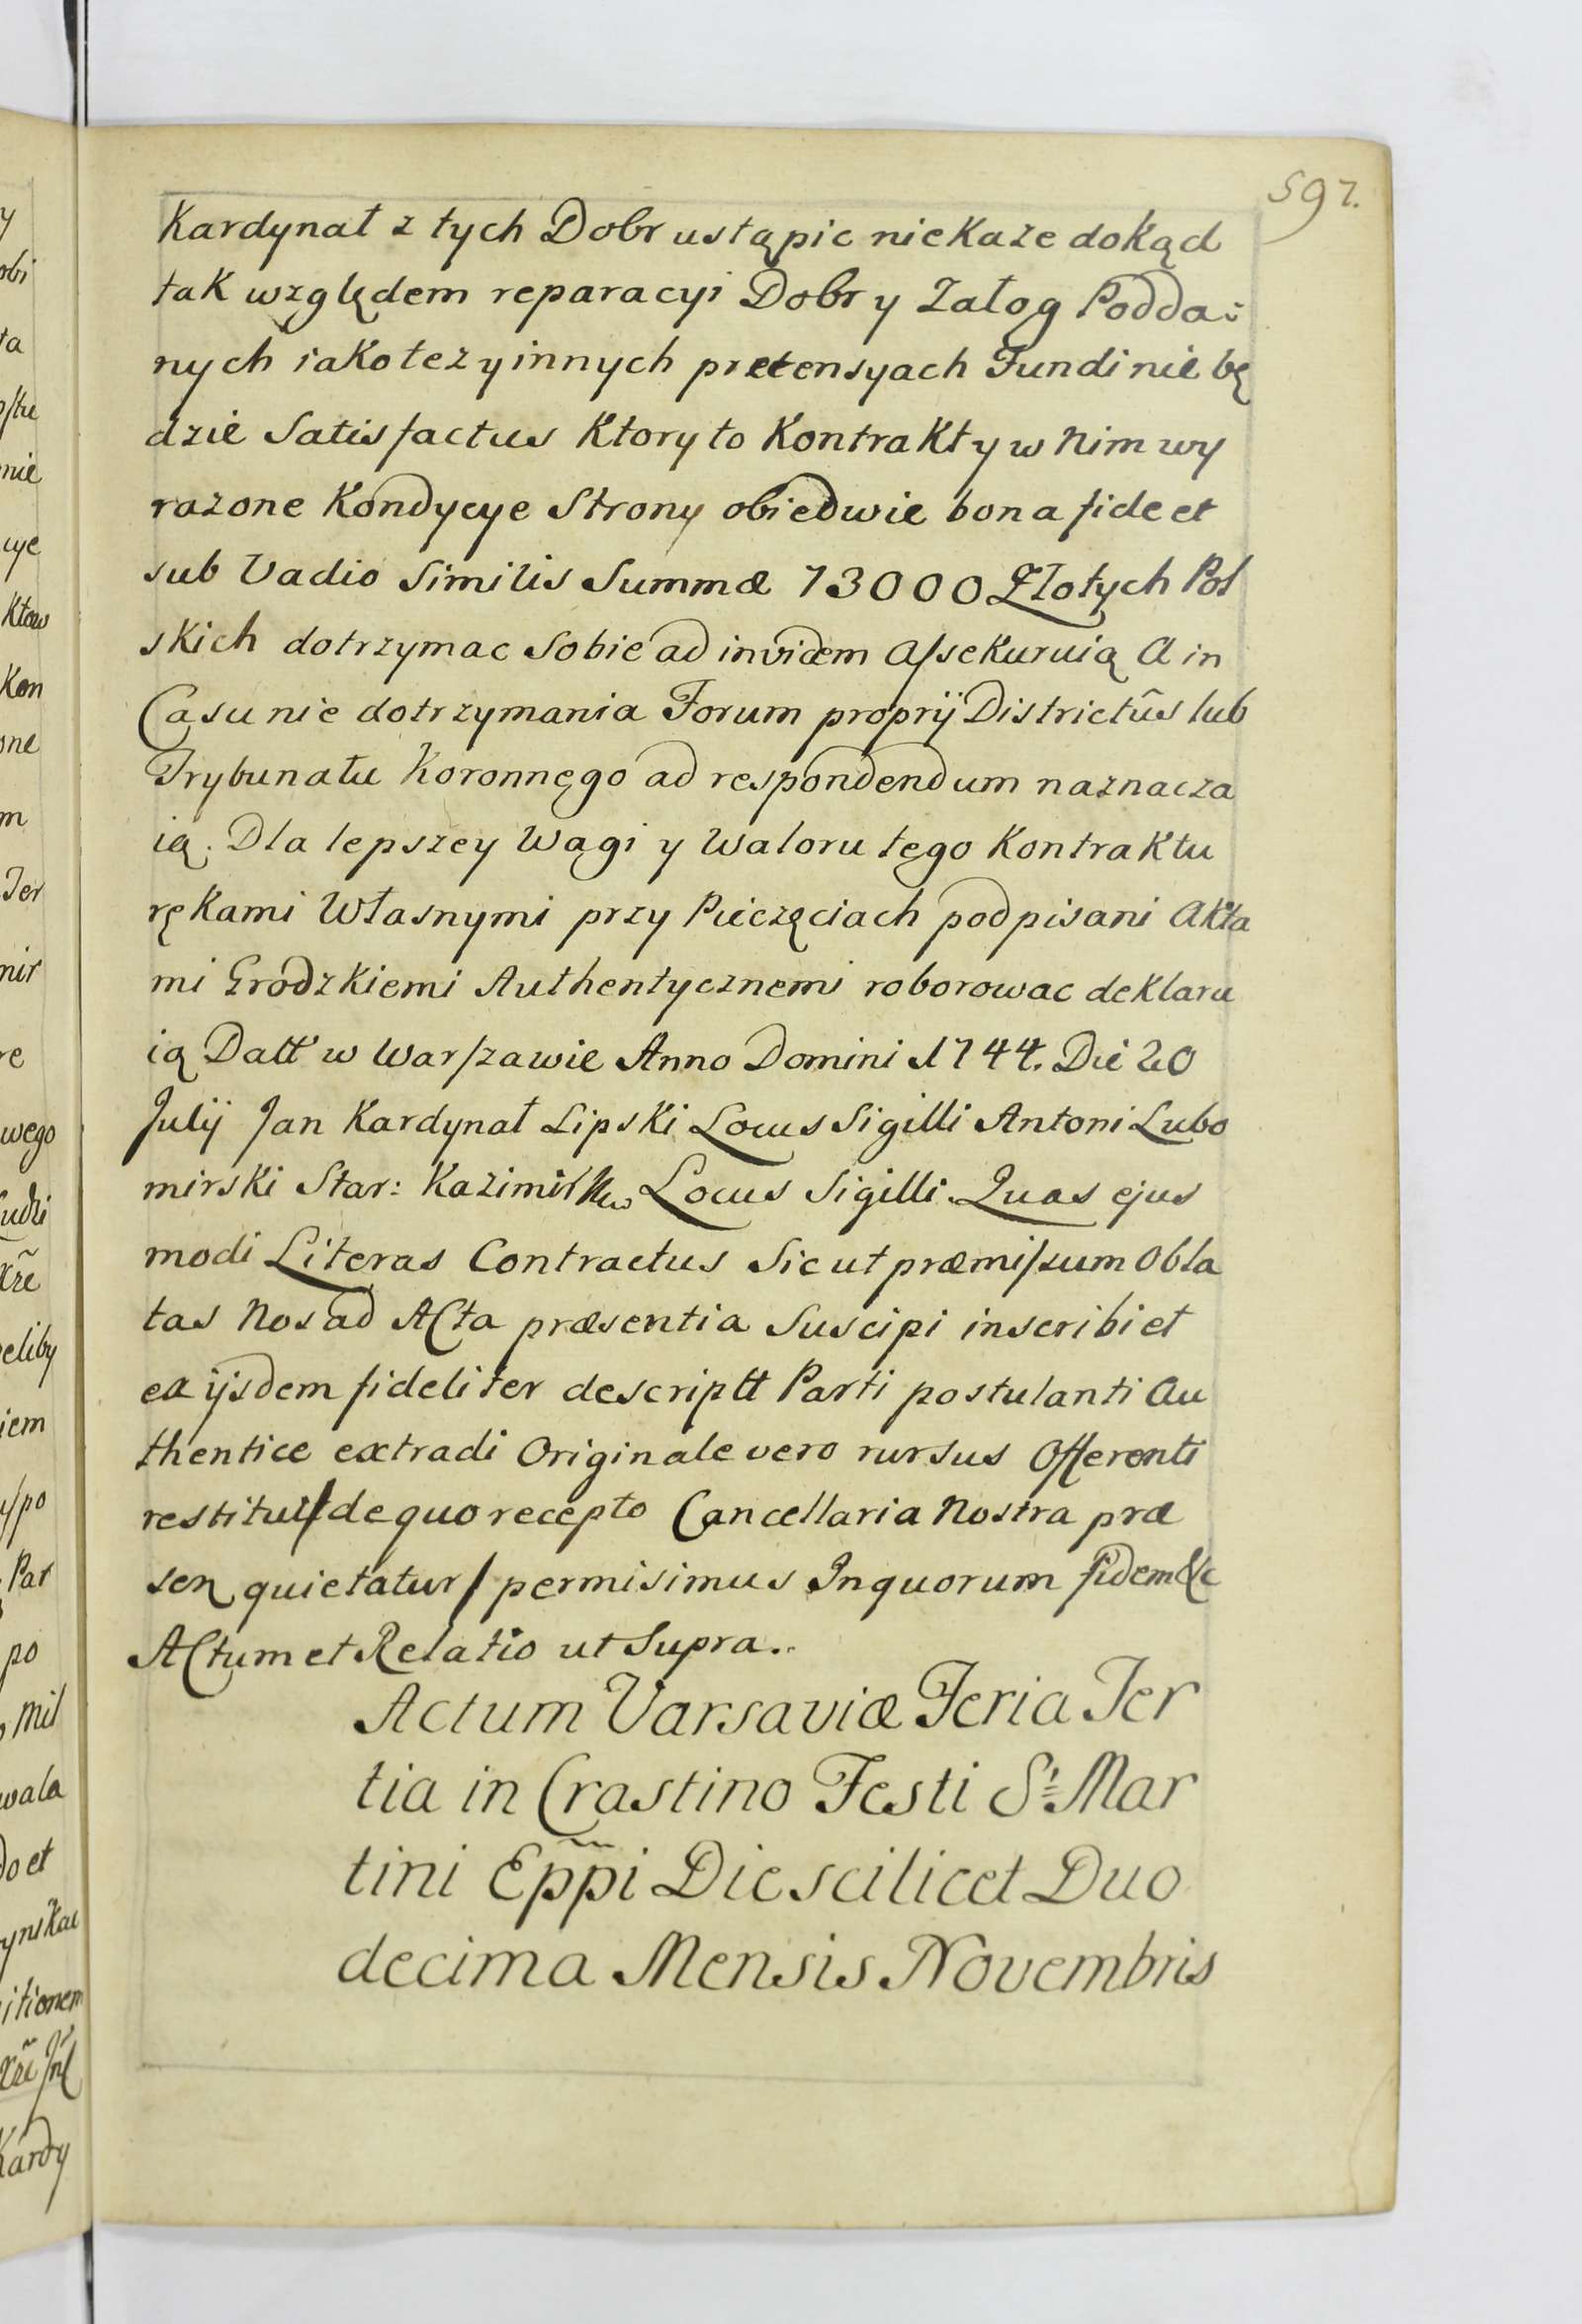 597.
Kardynał z tych Dobr ustąpic nie Kaze dokąd
tak względem reparacyi Dobr y Załog Podda:
nych iako tez y innych pretensyach Fundi nie bę
dzie Satisfactus Ktory to Kontrakt y w nim wy
razone Kondycye Strony obiedwie bona fide et
sub Vadio Similis Summæ 13000 Złotych Pol
skich dotrzymac Sobie ad invidem Assekuruią A in
Casu nie dotrzymania Forum proprij Districtûs lub
Trybunału Koronnego ad respondendum naznacza
ią. Dla lepszey Wagi y Waloru tego Kontraktu
rękami Własnymi przy Pieczęciach podpisani Akta
mi Grodzkiemi Authentycznemi roborowac deklaru
ią Datt w Warszawie Anno Domini 1744. Die 20
Julij Jan Kardynał Lipski Locus Sigilli Antoni Lubo
mirski Star: Kazimirsk Locus Sigilli. Quas ejus
modi Literas Contractus Sicut præmissum Obla
tas Nos ad Acta præsentia Suscipi inscribi et
ex ijsdem fideliter descriptt Parti postulanti Au
thentice extradi Originale vero rursus Offerenti
restitui/ de quo recepto Cancellaria Nostra præ
sen quietatur/ permisimus Inquorum fidem &c
Actum et Relatio ut Supra..
Actum Varsaviæ Feria Ter
tia in Crastino Festi St. Mar
tini Eppi Die scilicet Duo
decima Mensis Novembris